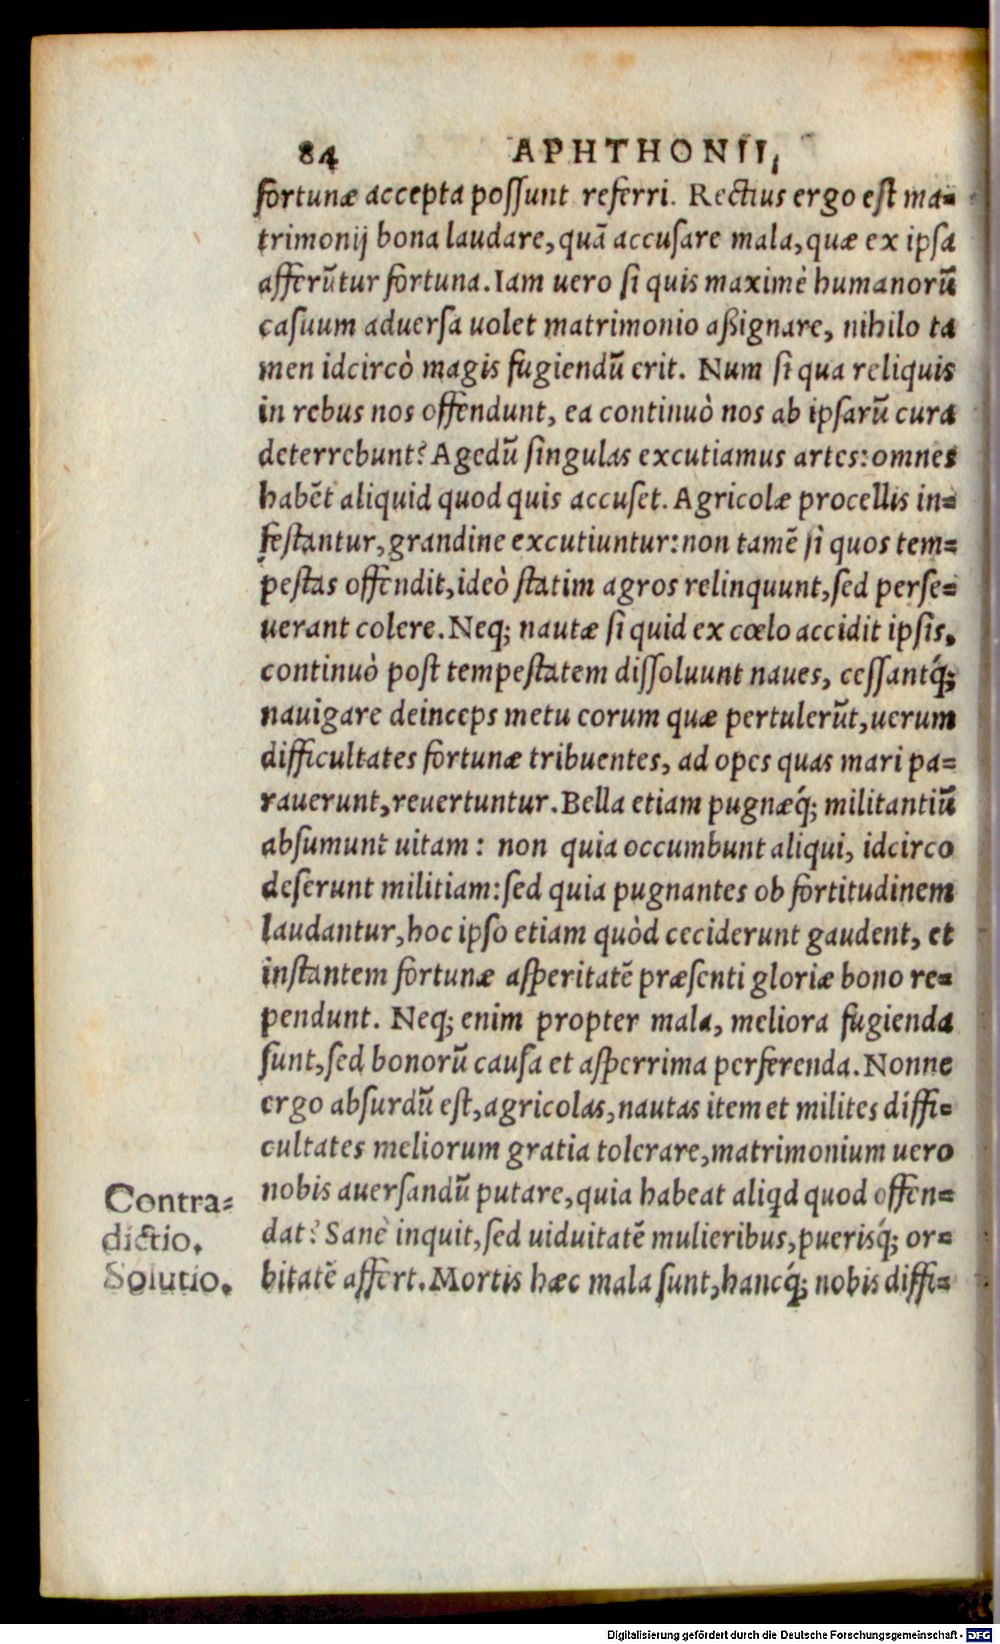 84 APHTHONII,
fortunæ accepta possunt referri. Rectius ergo est ma-
trimonij bona laudare, quā accusare mala, quæ ex ipsa
afferūtur fortuna. Iam uero si quis maximè humanorū
casuum aduersa uolet matrimonio aßignare, nihilo ta
men idcircò magis fugiendū erit. Num si qua reliquis
in rebus nos offendunt, ea continuò nos ab ipsarū cura
deterrebunt? Agedū singulas excutiamus artes: omnes
habēt aliquid quod quis accuset. Agricolæ procellis in-
festantur, grandine excutiuntur: non tamē si quos tem-
pestas offendit, ideò statim agros relinquunt, sed perse-
uerant colere. Neq; nautæ si quid ex cœlo accidit ipsis,
continuò post tempestatem dissoluunt naues, cessantq́;
nauigare deinceps metu eorum quæ pertulerūt, uerum
difficultates fortunæ tribuentes, ad opes quas mari pa-
rauerunt, reuertuntur. Bella etiam pugnæq́; militantiū
absumunt uitam: non quia occumbunt aliqui, idcirco
deserunt militiam: sed quia pugnantes ob fortitudinem
laudantur, hoc ipso etiam quòd ceciderunt gaudent, et
instantem fortunæ asperitatē præsenti gloriæ bono re-
pendunt. Neq; enim propter mala, meliora fugienda
sunt, sed bonorū causa et asperrima perferenda. Nonne
ergo absurdū est, agricolas, nautas item et milites diffi-
cultates meliorum gratia tolerare, matrimonium uero
nobis auersandū putare, quia habeat aliqd quod offen-
dat? Sanè inquit, sed uiduitatē mulieribus, puerisq́; or-
bitatē affert. Mortis hæc mala sunt, hancq́; nobis diffi-
Contra-
dictio.
Solutio.
Digitalisierung gefördert durch die Deutsche Forschungsgemeinschaft - DFG